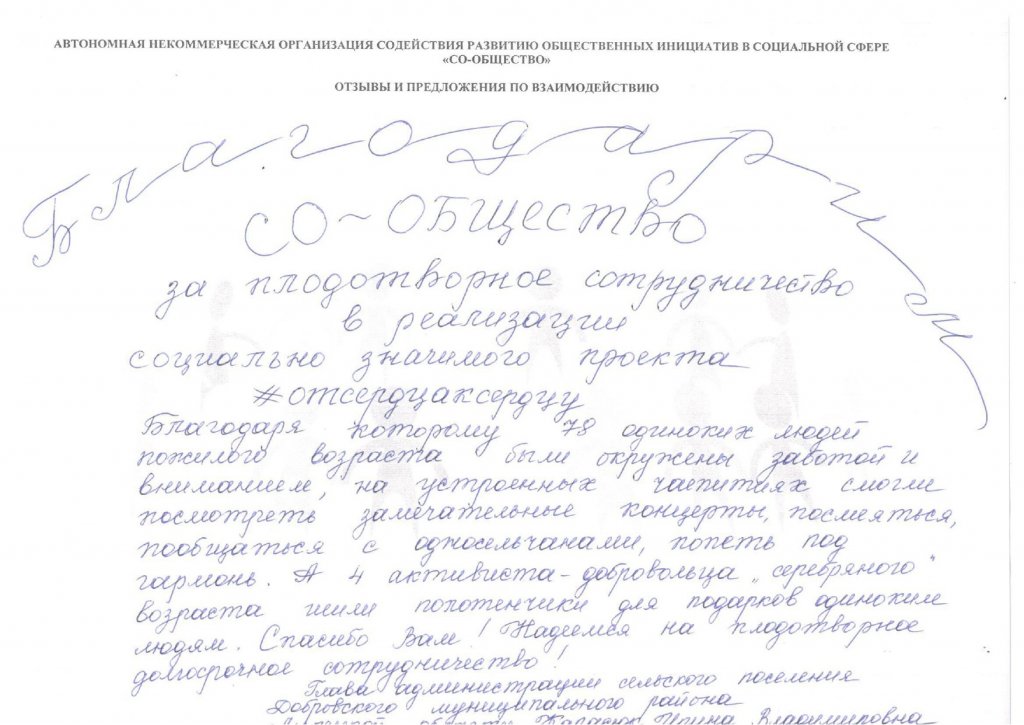 АВТОНОМНАЯ НЕКОММЕРЧЕСКАЯ ОРГАНИЗАЦИЯ СОДЕЙСТВИЯ РАЗВИТИЮ ОБЩЕСТВЕННЫХ ИНИЦИАТИВ В СОЦИАЛЬНОЙ СФЕРЕ
«СО-ОБЩЕСТВО»
ОТЗЫВЫ И ПРЕДЛОЖЕНИЯ ПО ВЗАИМОДЕЙСТВИЮ
Благодарим
СО-ОБЩЕСТВО
за плодотворное сотрудничество
в реализации
социально значимого проекта
#отсердцаксердцу
Благодаря которому 78 одиноких людей
пожилого возраста были окружены заботой и
вниманием, на устроенных чаепитиях смогли
посмотреть замечательные концерты, посмеяться,
пообщаться с односельчанами, попеть под
гармонь. А 4 активиста-добровольца „серебряного"
возраста шили полотенчики для подарков одиноким
людям. Спасибо Вам! Надеемся на плодотворное
долгосрочное сотрудничество!
Глава администрации сельского поселения
Добровского муниципального района
области Ирина Владимировна